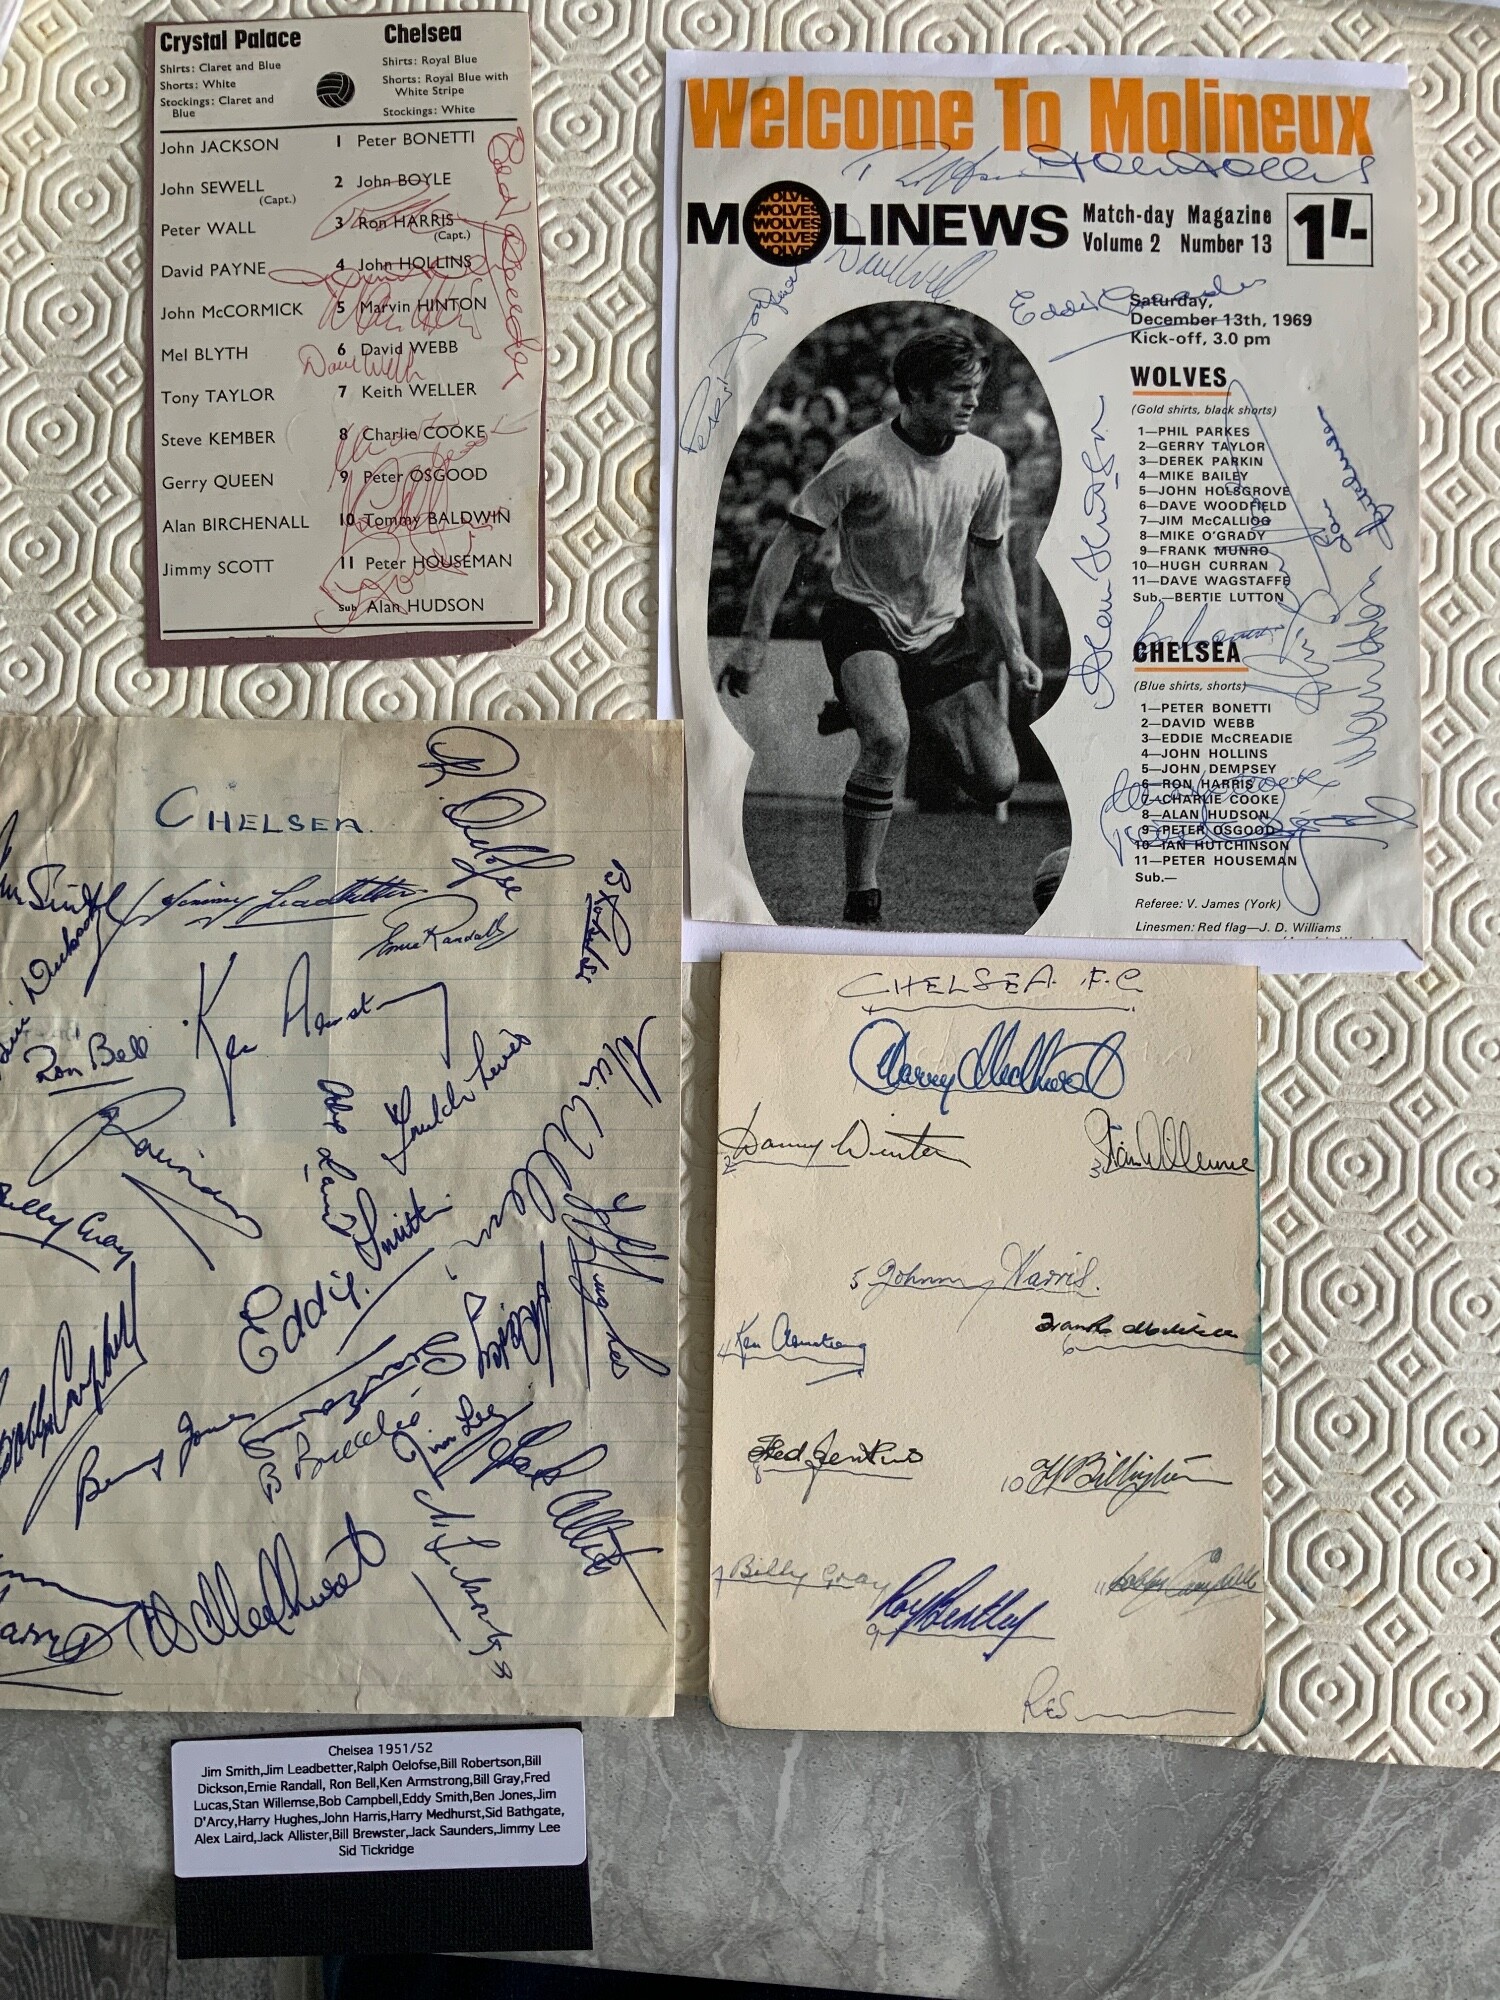 Crystal Palace
Shirts: Claret and Blue
Shorts: White
Stockings: Claret and
Blue
Chelsea
Shirts: Royal Blue
Shorts: Royal Blue with
White Stripe
Stockings: White
John JACKSON 1 Peter BONETTI
John SEWELL 2 John BOYLE
(Capt.)
Peter WALL 3 Ron HARRIS
(Capt.)
David PAYNE 4 John HOLLINS
John McCORMICK 5 Marvin HINTON
Mel BLYTH 6 David WEBB
Dave Webb
Tony TAYLOR 7 Keith WELLER
Steve KEMBER 8 Charlie COOKE
Gerry QUEEN 9 Peter OSGOOD
Alan BIRCHENALL 10 Tommy BALDWIN
Jimmy SCOTT 11 Peter HOUSEMAN
Sub Alan HUDSON
Welcome To Molineux
John Hollins
WOLVES
WOLVES
WOLVES
WOLVES
WOLVES
MOLINEWS
Match-day Magazine
Volume 2 Number 13
1'/-
Dave Webb
Eddie McCreadie
Saturday,
December 13th, 1969
Kick-off, 3.0 pm
WOLVES
(Gold shirts, black shorts)
1—PHIL PARKES
2—GERRY TAYLOR
3—DEREK PARKIN
4—MIKE BAILEY
5—JOHN HOLSGROVE
6—DAVE WOODFIELD
7—JIM McCALLIOG
8—MIKE O'GRADY
9—FRANK MUNRO
10—HUGH CURRAN
11—DAVE WAGSTAFFE
Sub.—BERTIE LUTTON
Ian Hutchinson
Alan Hudson
CHELSEA
(Blue shirts, shorts)
1—PETER BONETTI
2—DAVID WEBB
3—EDDIE McCREADIE
4—JOHN HOLLINS
5—JOHN DEMPSEY
6—RON HARRIS
7—CHARLIE COOKE
8—ALAN HUDSON
9—PETER OSGOOD
10—IAN HUTCHINSON
11—PETER HOUSEMAN
Sub.—
Referee: V. James (York)
Linesmen: Red flag—J. D. Williams
CHELSEA
R. Oelofse
Jimmy Leadbetter
Ernie Randall
B Robertson
Ken Armstrong
Ron Bell
Alex Laird
Billy Gray
Eddie Smith
H Hughes
Bobby Campbell
Benny Jones
Jim Lewis
Jack Allister
H Medhurst
CHELSEA F.C
Harry Medhurst
2 Danny Winter
3 Stan Willemse
5 Johnny Harris.
4 Ken Armstrong
6 Frank Mitchell
Fred Jenkins
10 H Billington
7 Billy Gray
9 Roy Bentley
11 Bobby Campbell
RES
Chelsea 1951/52
Jim Smith,Jim Leadbetter,Ralph Oelofse,Bill Robertson,Bill
Dickson,Ernie Randall, Ron Bell,Ken Armstrong,Bill Gray,Fred
Lucas,Stan Willemse,Bob Campbell,Eddy Smith,Ben Jones,Jim
D'Arcy,Harry Hughes,John Harris,Harry Medhurst,Sid Bathgate,
Alex Laird,Jack Allister,Bill Brewster,Jack Saunders,Jimmy Lee
Sid Tickridge